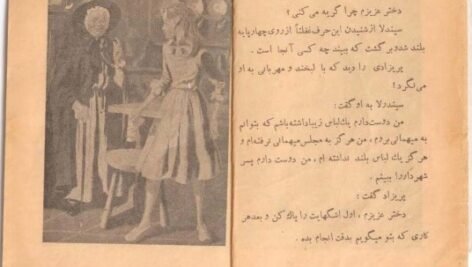 دختر عزیزم چرا گریه می کنی؟
سیندرلا از شنیدن این حرف غفلتاً از روی چهارپایه
بلند شد و برگشت که ببیند چه کسی آنجا است .
پریزادی را دید که با لبخند و مهربانی به او
می نگرد!
سیندرلا به او گفت:
من دوست دارم یک لباس زیبا داشته باشم که بتوانم
به میهمانی بروم . من هرگز به مجلس میهمانی نرفته ام و
هرگز یک لباس بلند نداشته ام ، من دوست دارم پسر
شهردار را ببینم .
پریزاد گفت :
دختر عزیزم ، اول اشکهایت را پاک کن و بعد هر
کاری که بتو میگویم بدقت انجام بده .